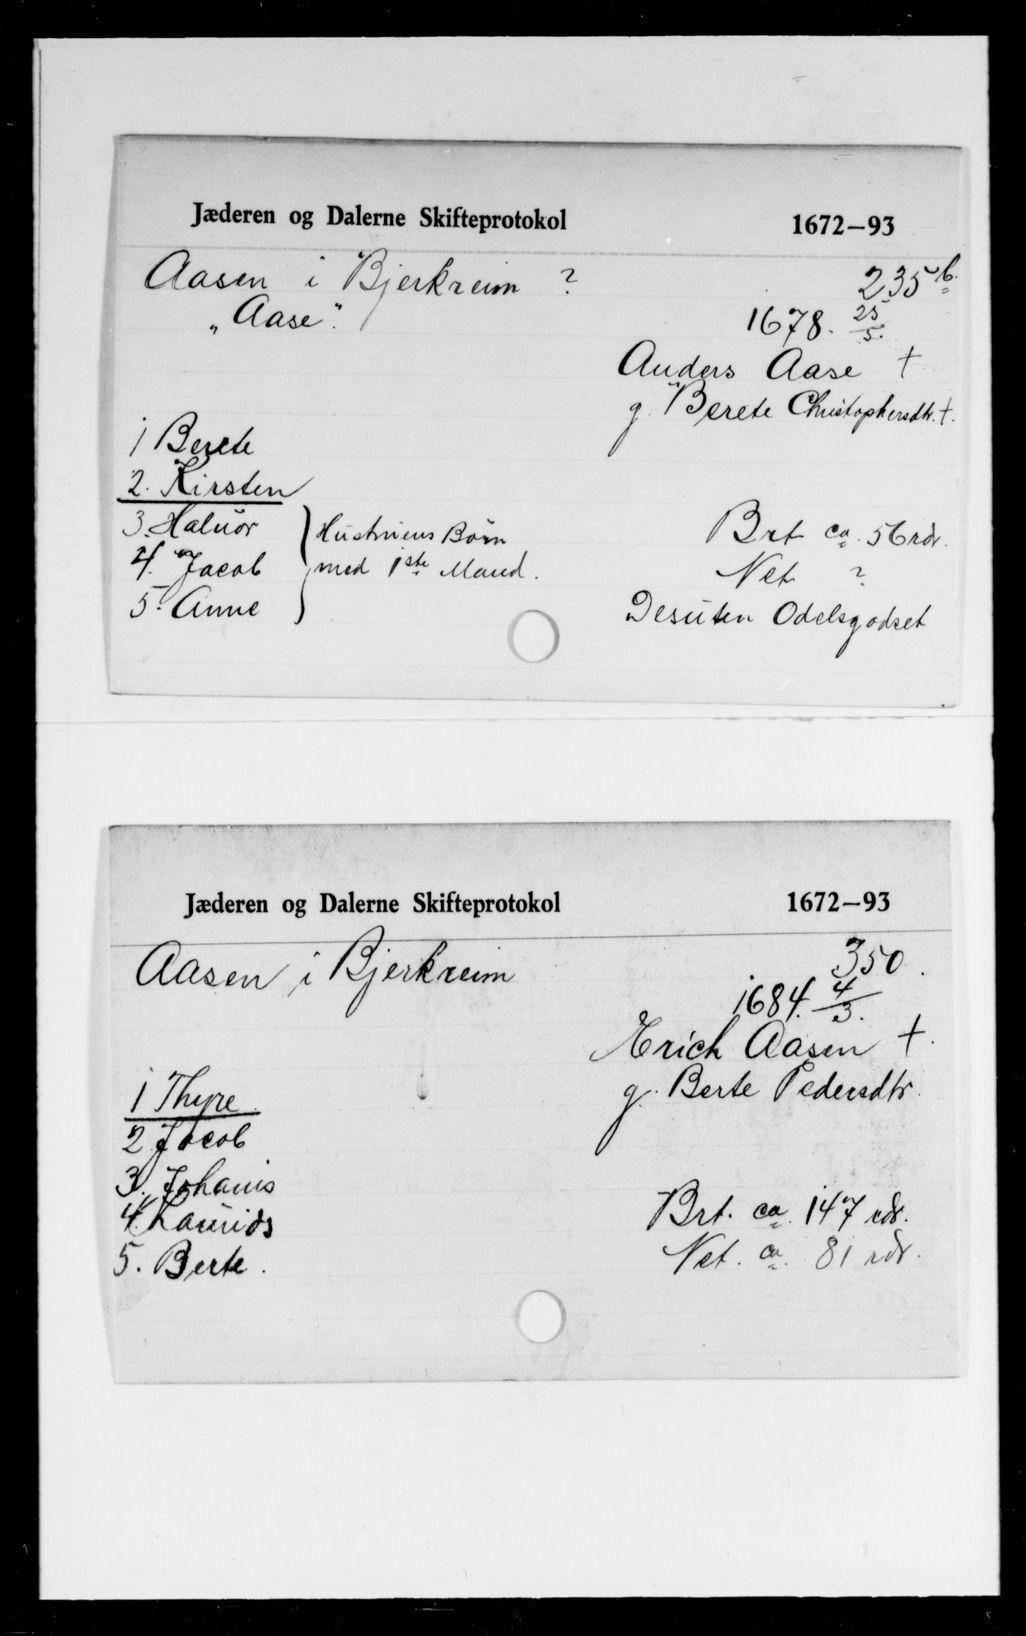 Jæderen og Dalerne Skifteprotokol 1672–93
Aasen i Bjerkreim ? 235 b.
"Aase". 1678. 25/5.
Anders Aase †
g. Berete Christophersdtr. †.
1 Berete
2. Kirsten
3. Haluor
4. Jacob
5. Anne
Hustruens Börn
med 1ste Mand.
Brt ca. 56 rdr.
Net ?
Desuten Odelsgodset
Jæderen og Dalerne Skifteprotokol 1672–93
Aasen i Bjerkreim 350.
1684. 4/3.
Erich Aasen †.
g. Berte Pedersdtr.
1 Thyre.
2 Jacob
3. Johanis
4. Laurids
5. Berte.
Brt. ca. 147 rdr.
Net. ca. 81 rdr.